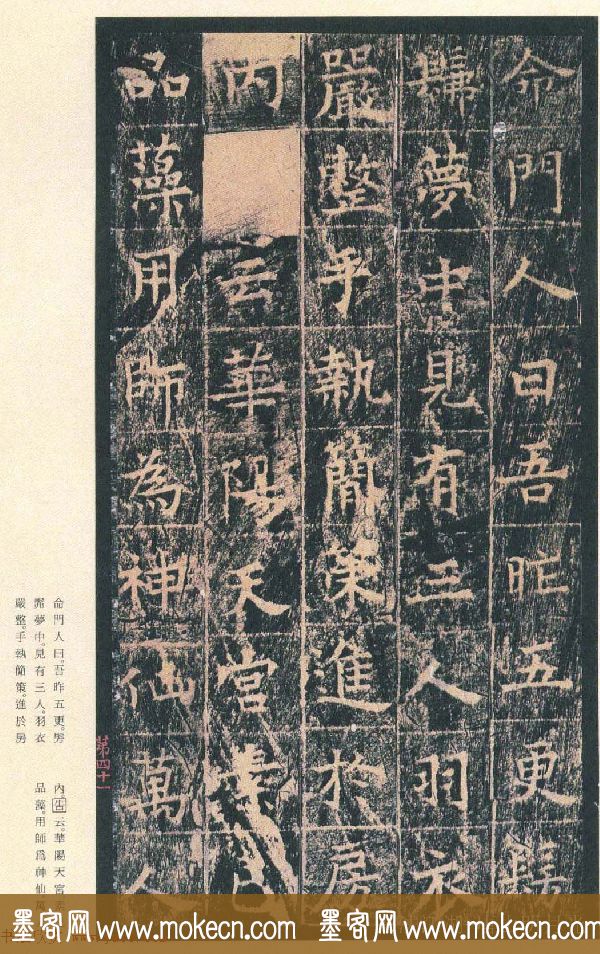 命門人曰吾昨五更髣
髴夢中見有三人羽衣
嚴整手執簡策進於房
內云華陽天宮素
品藻用師為神仙萬
第四十一
命門人曰。吾昨五更。髣
髴夢中。見有三人。羽衣
嚴整。手執簡策。進於房
內。告云。華陽天宮
品藻。用師爲神仙
墨客网 www.mokecn.com 墨客网 www.mokecn.com